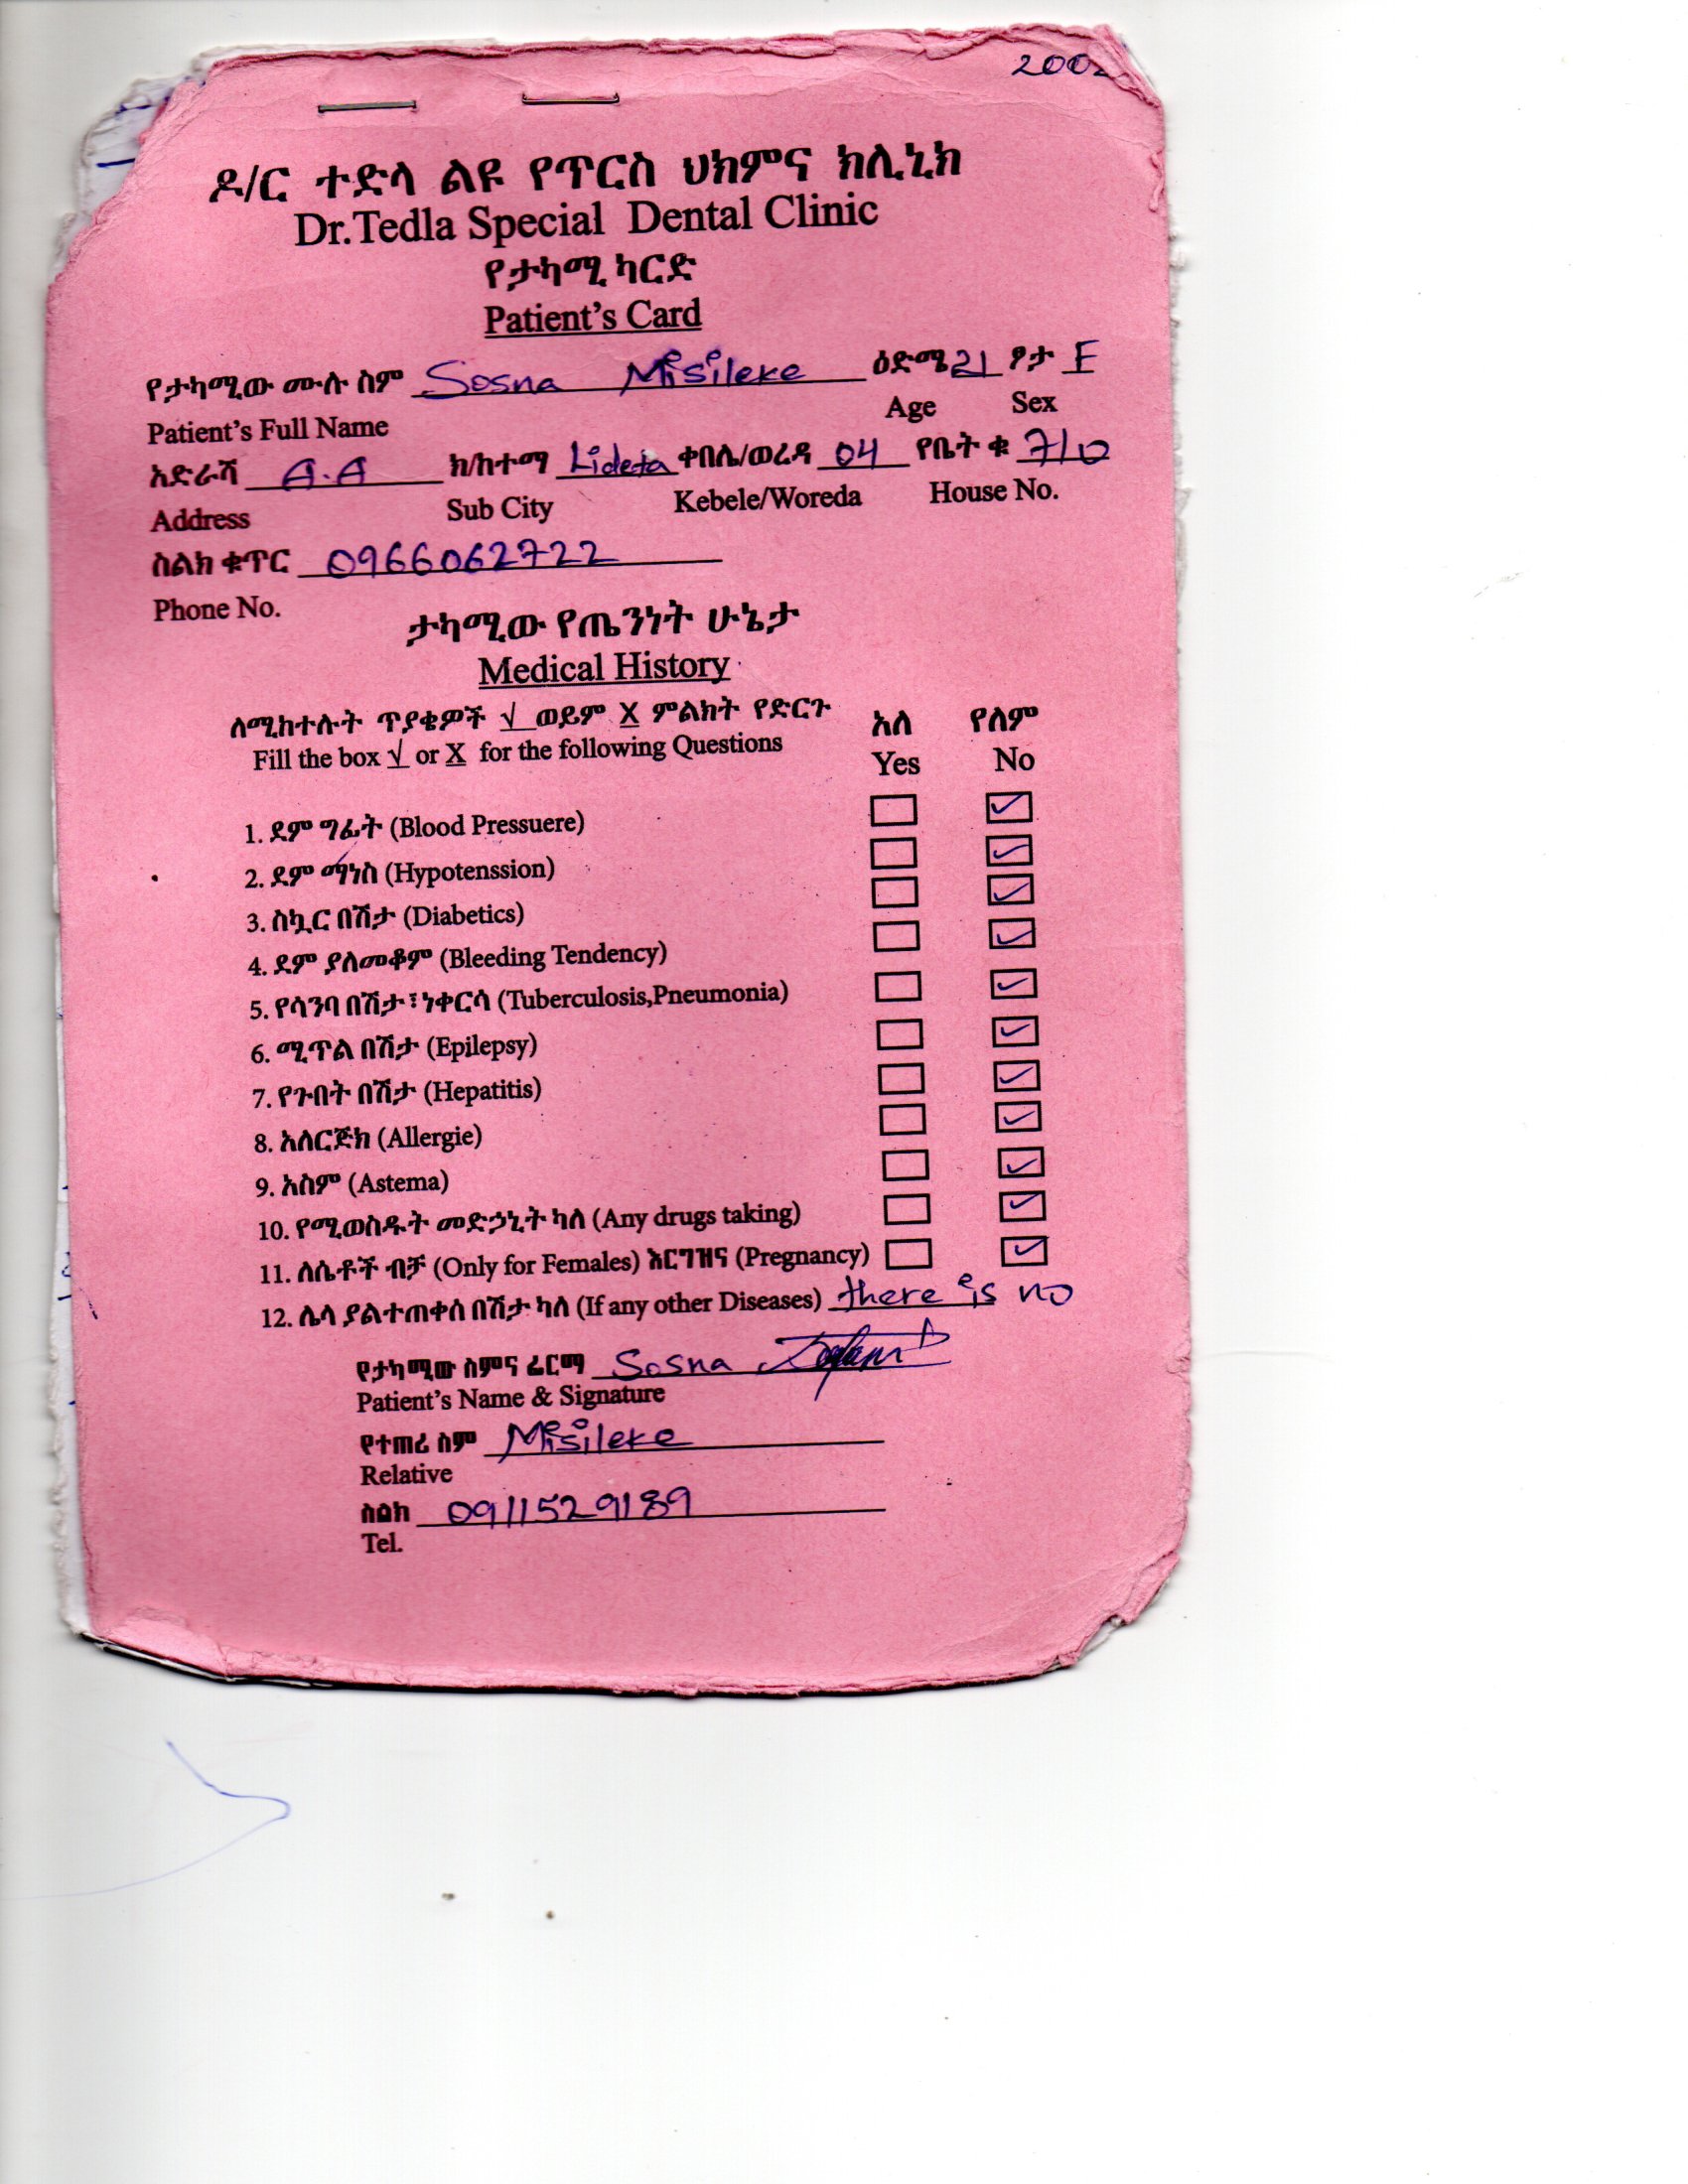 2002
ዶ/ር ተድላ ልዩ የጥርስ ህክምና ክሊኒክ
Dr.Tedla Special Dental Clinic
የታካሚ ካርድ
Patient's Card
የታካሚው ሙሉ ስም Sosna Misileke ዕድሜ 21 ፆታ F
Patient's Full Name Age Sex
አድራሻ A.A ክ/ከተማ Lideta ቀበሌ/ወረዳ 04 የቤት ቁ 710
Address Sub City Kebele/Woreda House No.
ስልክ ቁጥር 0966062722
Phone No.
ታካሚው የጤንነት ሁኔታ
Medical History
ለሚከተሉት ጥያቄዎች √ ወይም X ምልክት የድርጉ አለ የለም
Fill the box √ or X for the following Questions Yes No
1. ደም ግፊት (Blood Pressuere) ✓
2. ደም ማነስ (Hypotenssion) ✓
3. ስኳር በሽታ (Diabetics) ✓
4. ደም ያለመቆም (Bleeding Tendency) ✓
5. የሳንባ በሽታ፣ነቀርሳ (Tuberculosis,Pneumonia) ✓
6. ሚጥል በሽታ (Epilepsy) ✓
7. የጉበት በሽታ (Hepatitis) ✓
8. አለርጅክ (Allergie) ✓
9. አስም (Astema) ✓
10. የሚወስዱት መድኃኒት ካለ (Any drugs taking) ✓
11. ለሴቶች ብቻ (Only for Females) እርግዝና (Pregnancy) ✓
12. ሌላ ያልተጠቀሰ በሽታ ካለ (If any other Diseases) there is no
የታካሚው ስምና ፊርማ Sosna
Patient's Name & Signature
የተጠሪ ስም Misileke
Relative
ስልክ 0911529189
Tel.